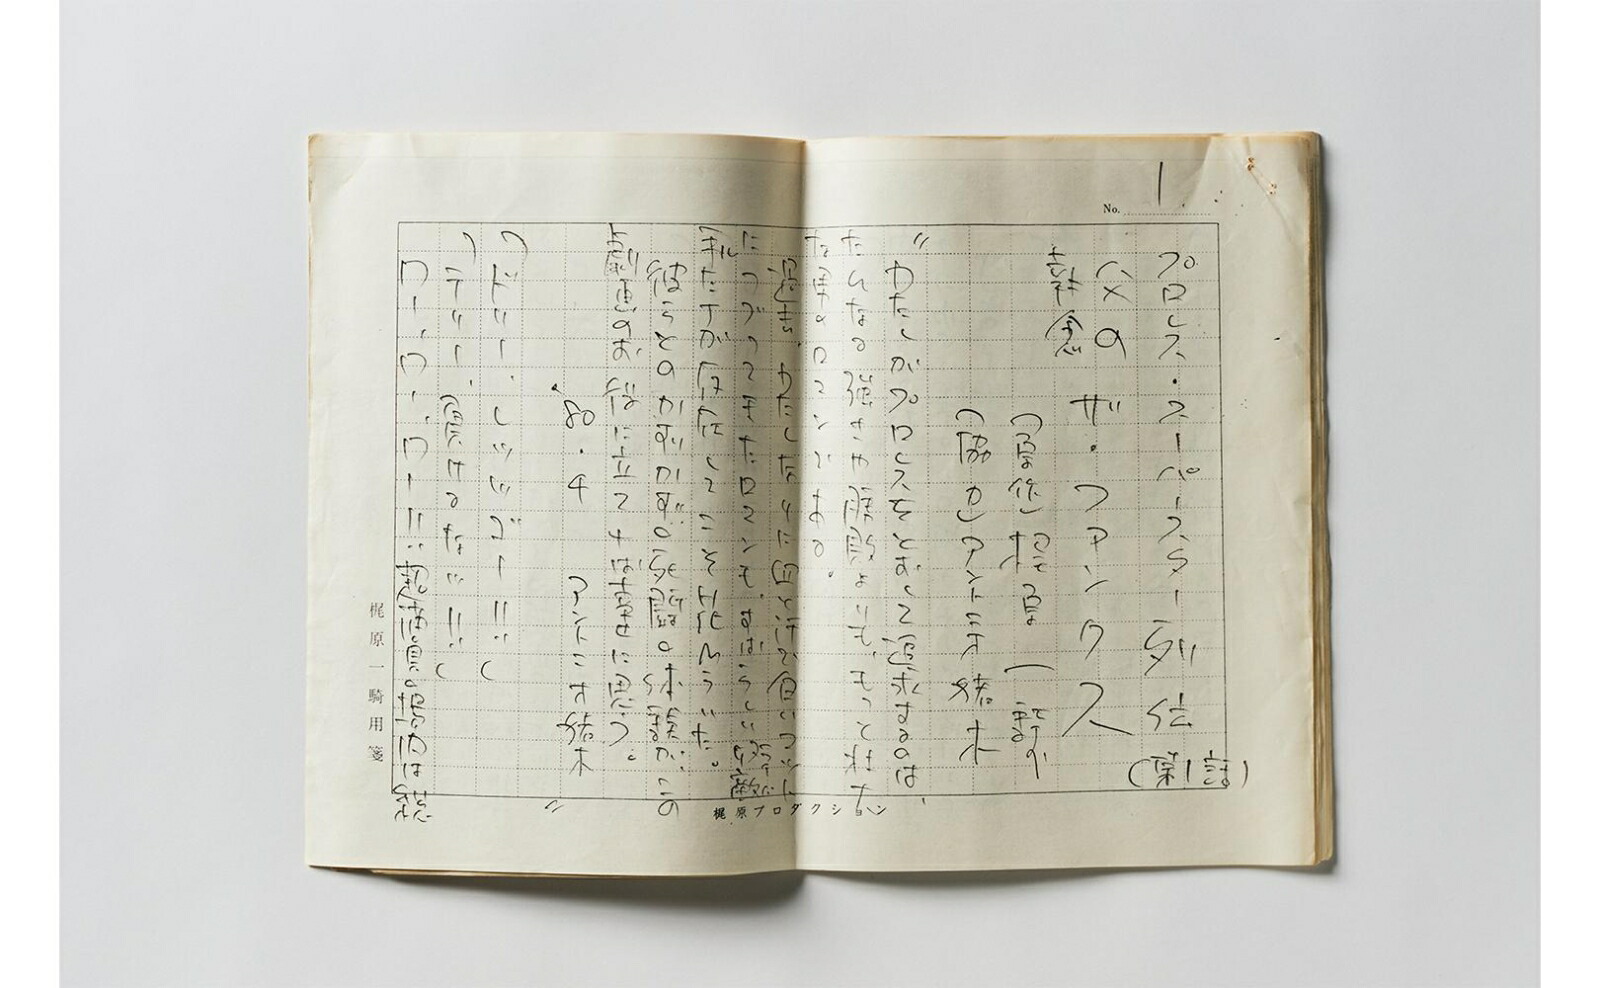 No. 1
プロレス・スーパースター列伝
(第1話)
父の執念 ザ・ファンクス
(原作)梶原一騎
(協力)アントニオ猪木
〝わたしがプロレスをとおして追求するのは、
たんなる強さや勝敗よりも、もっと壮大
な男のロマンである。
過去、わたしなりに血と汗で
につづってきたロマンも、すばらしい好敵
手たちが存在してこそ花ひらいた。
彼らとのかずかずの死闘の体験が、この
劇画のお役に立てれば幸せに思う。〟
'80・4 アントニオ猪木
(ドリー・レッツゴー!!)
(テリー、負けるなッ!!)
ワー、ワー、ワー!!超満員の場内は
梶原プロダクション
梶原一騎用箋